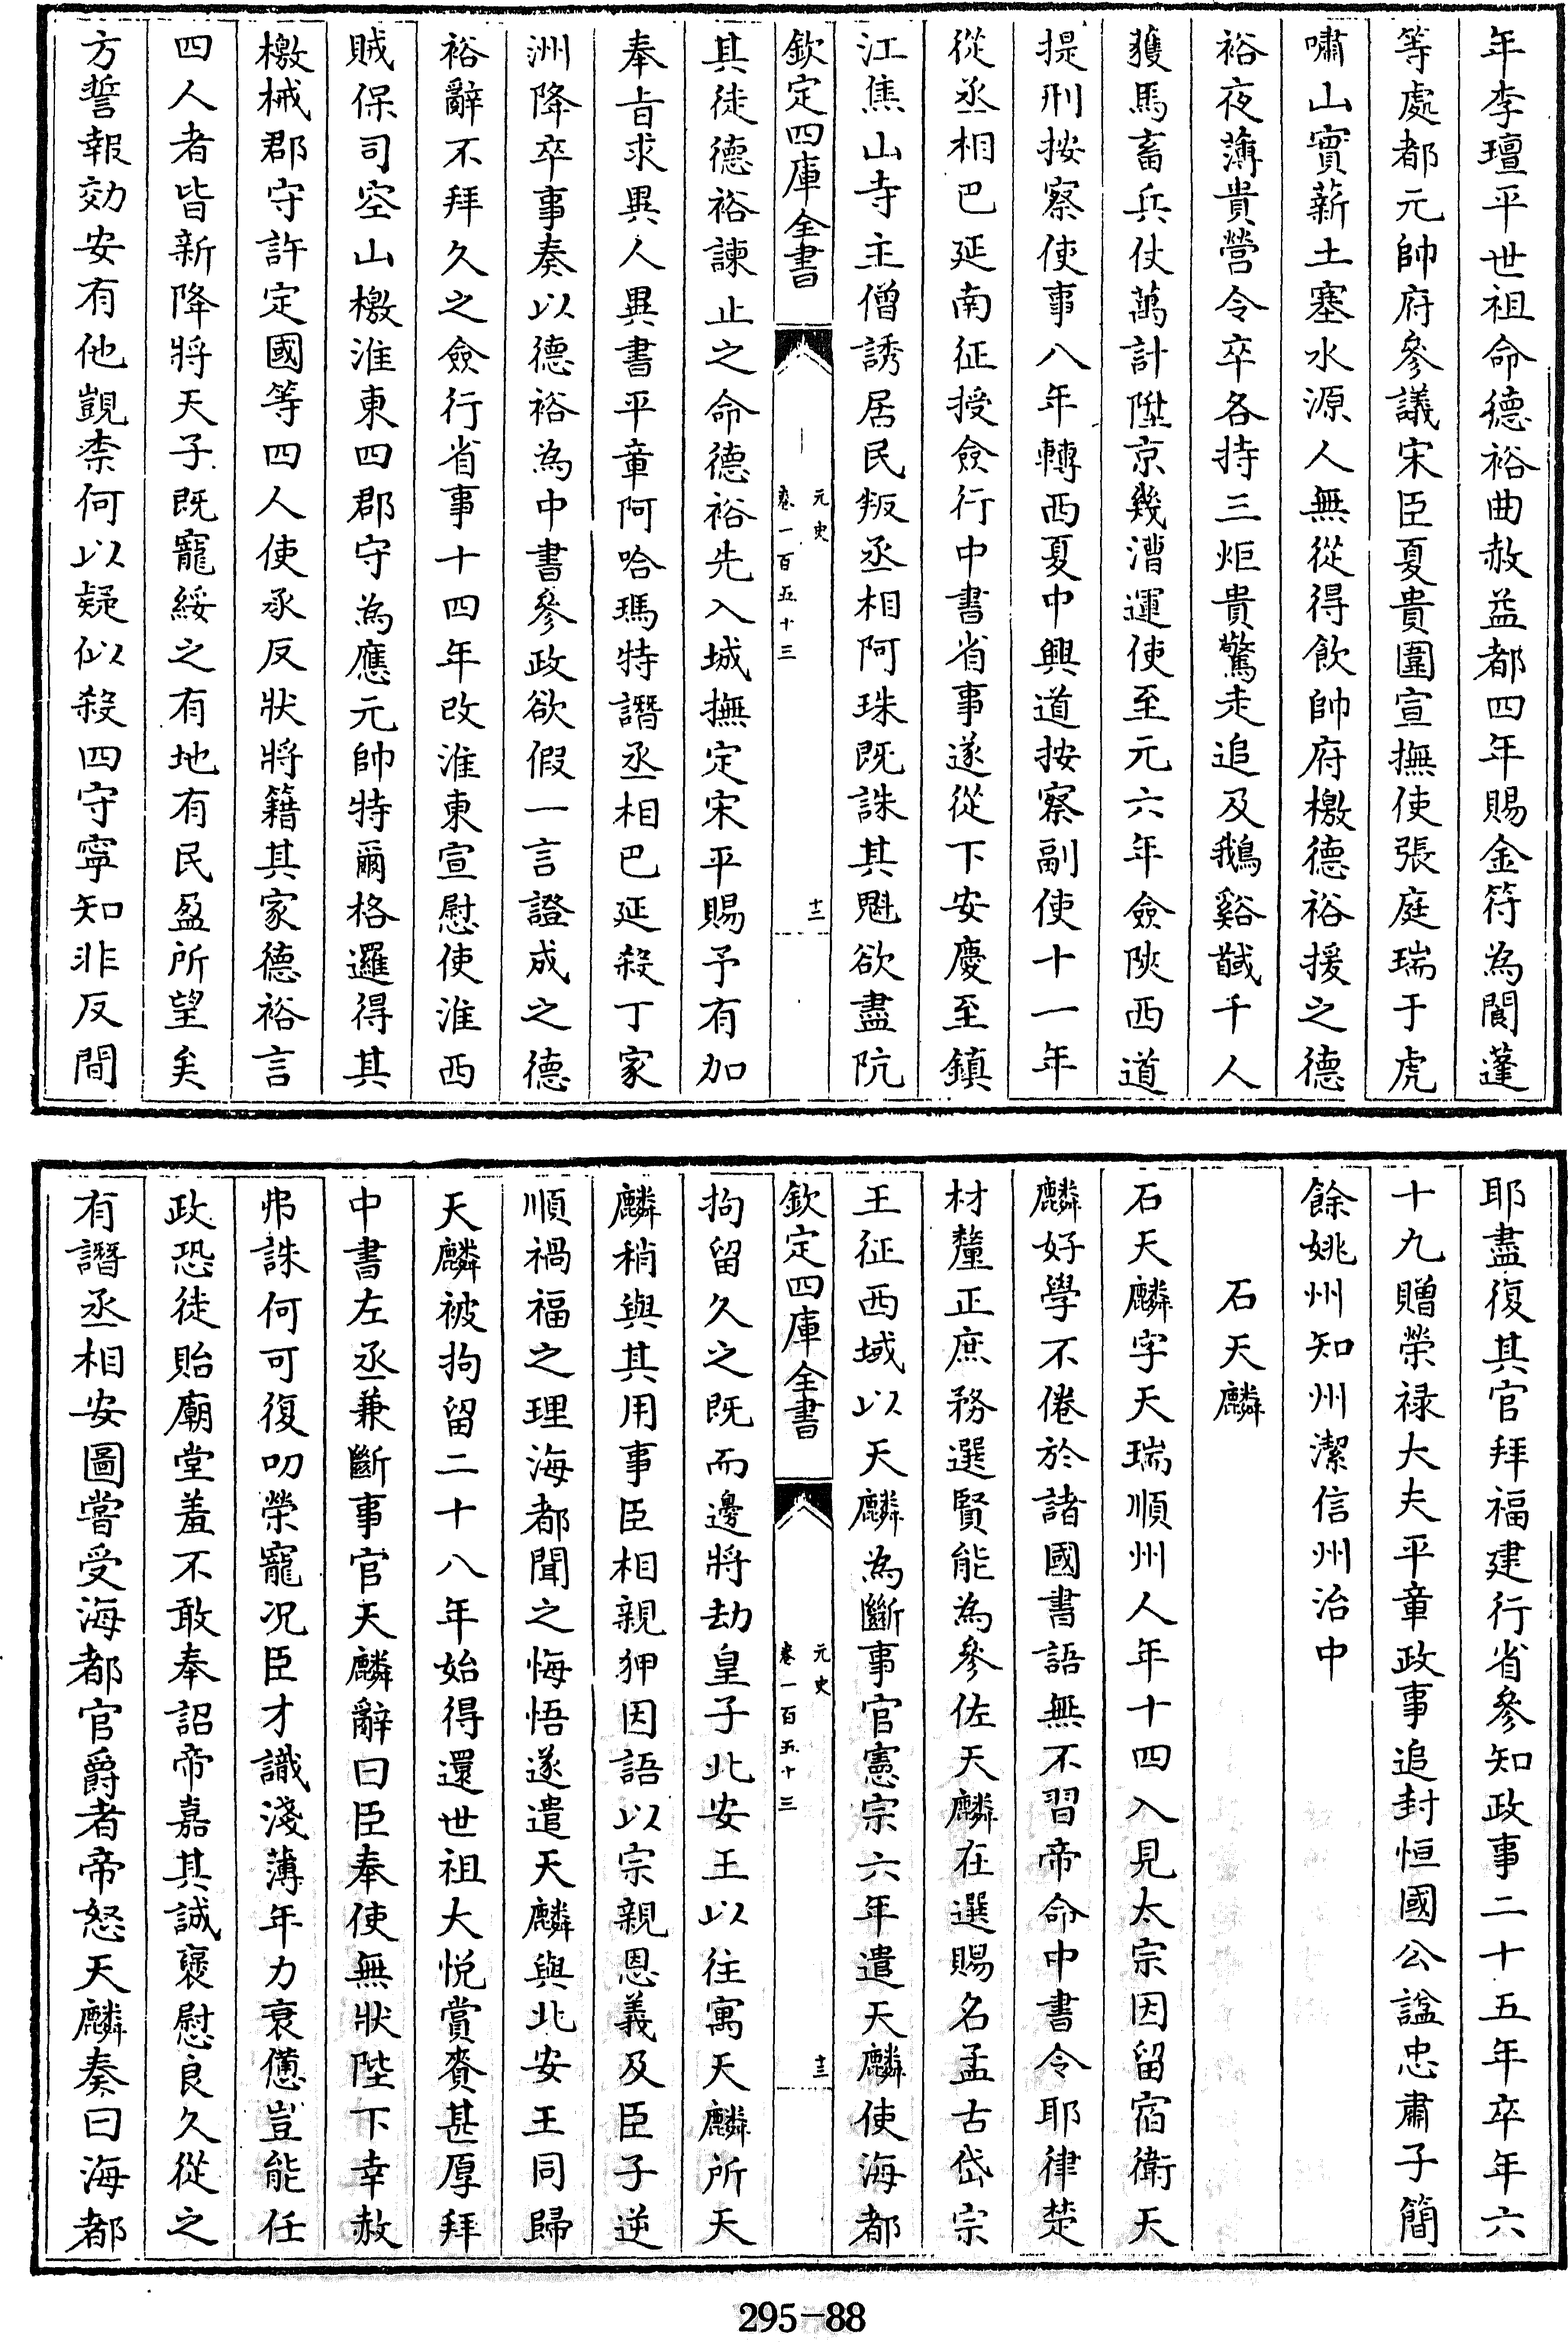 年李璮平世祖命德裕曲赦益都四年賜金符為閬蓬
等處都元帥府參議宋臣夏貴圍宣撫使張庭瑞于虎
嘯山實薪土塞水源人無從得飲帥府檄德裕援之德
裕夜薄貴營令卒各持三炬貴驚走追及鵝谿馘千人
獲馬畜兵仗萬計陞京幾漕運使至元六年僉陜西道
提刑按察使事八年轉西夏中興道按察副使十一年
從丞相巴延南征授僉行中書省事遂從下安慶至鎮
江焦山寺主僧誘居民叛丞相阿珠既誅其魁欲盡阬
欽定四庫全書
元史
卷一百五十三
十二
其徒德裕諫止之命德裕先入城撫定宋平賜予有加
奉旨求異人異書平章阿哈瑪特譖丞相巴延殺丁家
洲降卒事奏以德裕為中書參政欲假一言證成之德
裕辭不拜久之僉行省事十四年改淮東宣慰使淮西
賊保司空山檄淮東四郡守為應元帥特爾格邏得其
檄械郡守許定國等四人使承反狀將籍其家德裕言
四人者皆新降將天子既寵綏之有地有民盈所望矣
方誓報効安有他覬柰何以疑似殺四守寧知非反間
耶盡復其官拜福建行省參知政事二十五年卒年六
十九贈榮禄大夫平章政事追封恒國公諡忠肅子簡
餘姚州知州潔信州治中
石天麟
石天麟字天瑞順州人年十四入見太宗因留宿衛天
麟好學不倦於諸國書語無不習帝命中書令耶律楚
材釐正庶務選賢能為參佐天麟在選賜名孟古岱宗
王征西域以天麟為斷事官憲宗六年遣天麟使海都
欽定四庫全書
元史
卷一百五十三
十三
拘留久之既而邊將劫皇子北安王以往寓天麟所天
麟稍與其用事臣相親狎因語以宗親恩義及臣子逆
順禍福之理海都聞之悔悟遂遣天麟與北安王同歸
天麟被拘留二十八年始得還世祖大悦賞賚甚厚拜
中書左丞兼斷事官天麟辭曰臣奉使無狀陛下幸赦
弗誅何可復叨榮寵况臣才識淺薄年力衰憊豈能任
政恐徒貽廟堂羞不敢奉詔帝嘉其誠褒慰良久從之
有譖丞相安圖嘗受海都官爵者帝怒天麟奏曰海都
295-88